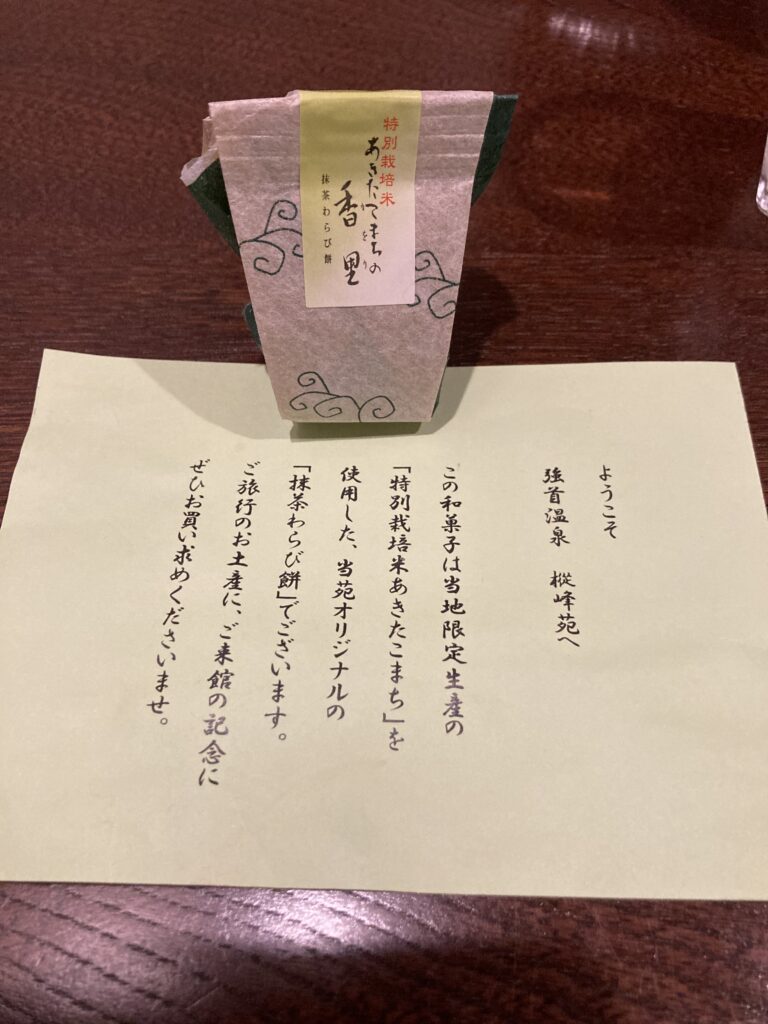 特別栽培米
あきたこまちの
香里
かをり
抹茶わらび餅
ようこそ
強首温泉　樅峰苑へ
この和菓子は当地限定生産の
「特別栽培米あきたこまち」を
使用した、当苑オリジナルの
「抹茶わらび餅」でございます。
ご旅行のお土産に、ご来館の記念に
ぜひお買い求めくださいませ。